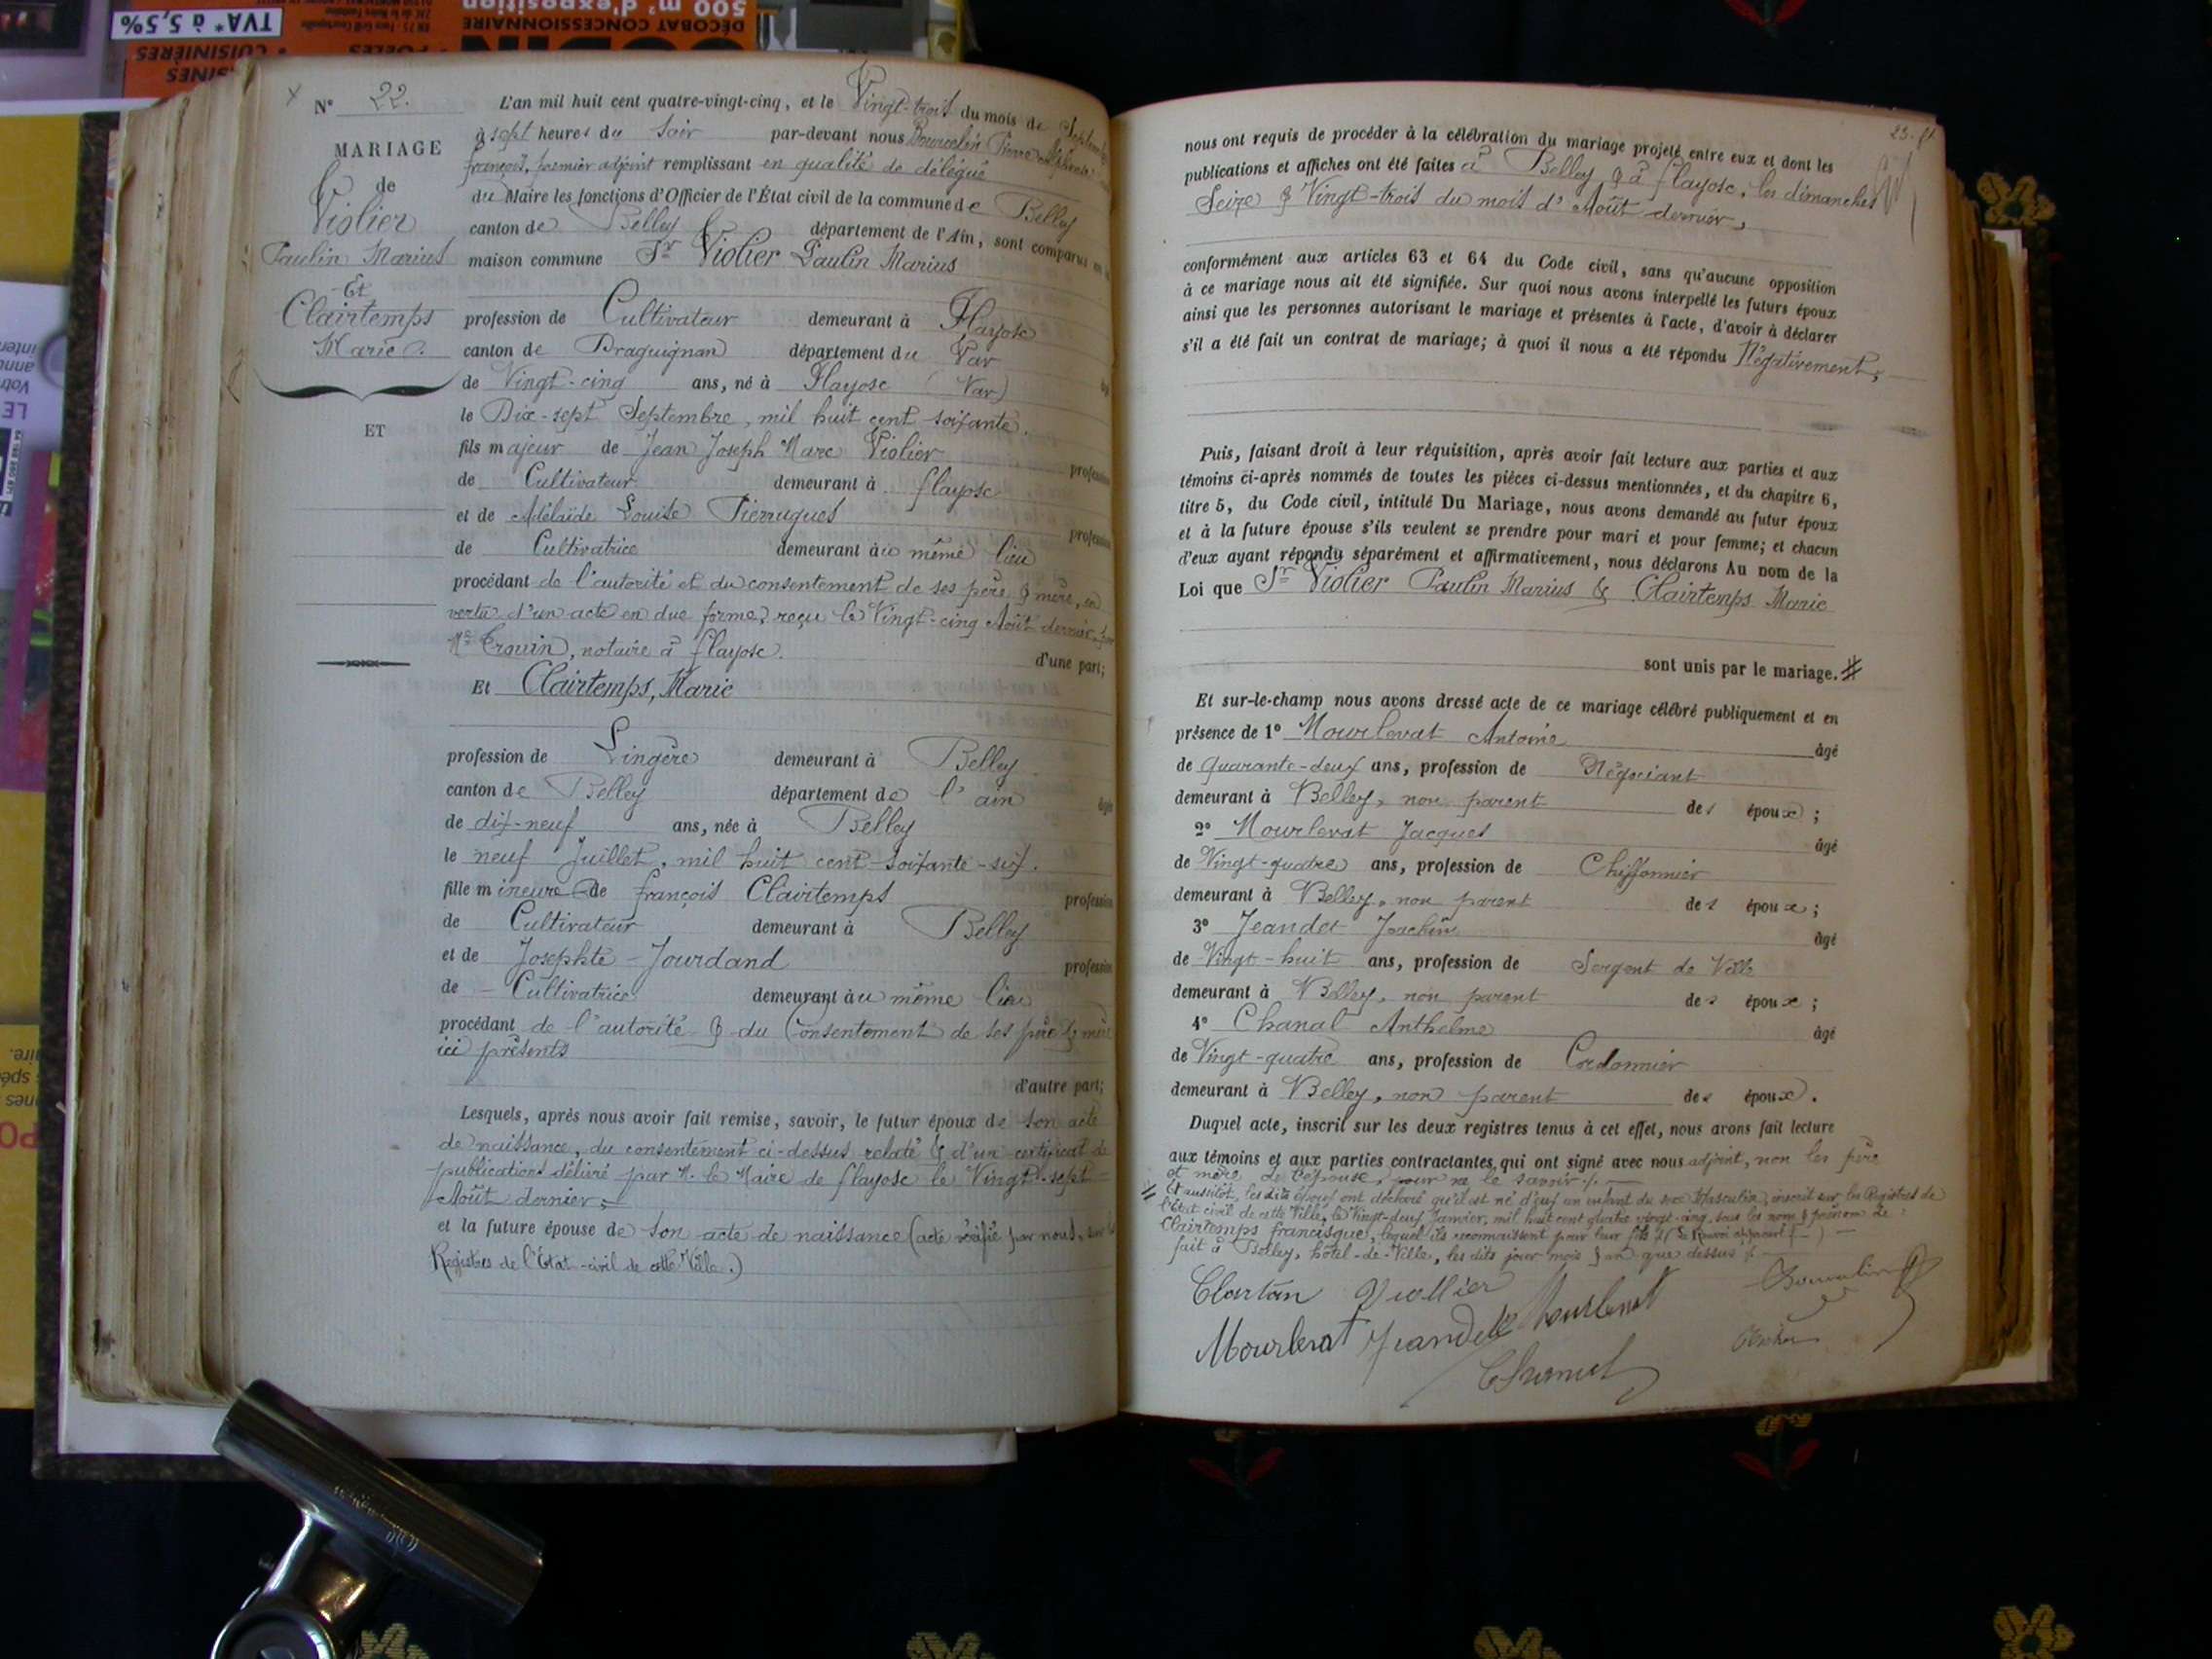 500 m² d'exposition
DÉCOBAT CONCESSIONNAIRE
TVA* à 5,5%
POÊLES
CUISINIÈRES
N° 22.
MARIAGE
de
Violier
Paulin Marius
Et
Clairtemps
Marie
ET
L'an mil huit cent quatre-vingt-cinq, et le Vingt-trois du mois de Septembre
à sept heures du soir par-devant nous Bourcelin Pierre
françois, premier adjoint remplissant en qualité de délégué
du Maire les fonctions d'Officier de l'État civil de la commune de Belley
canton de Belley département de l'Ain, sont comparus en la
maison commune Sr Violier Paulin Marius
profession de Cultivateur demeurant à Flayosc
canton de Draguignan département du Var
de Vingt-cinq ans, né à Flayosc (Var)
le Dix-sept Septembre, mil huit cent soixante.
fils majeur de Jean Joseph Marc Violier profession
de Cultivateur demeurant à flayosc
et de Adélaïde Louise Pierrugues profession
de Cultivatrice demeurant au même lieu
procédant de l'autorité et du consentement de ses père & mère, en
vertu d'un acte en due forme, reçu le Vingt-cinq Août dernier, par
Me Trouin, notaire à flayosc. d'une part;
Et Clairtemps, Marie
profession de Lingère demeurant à Belley
canton de Belley département de l'ain âgée
de dix-neuf ans, née à Belley
le neuf Juillet, mil huit cent soixante-six.
fille mineure de françois Clairtemps profession
de Cultivateur demeurant à Belley
et de Josephte Jourdand profession
de Cultivatrice demeurant au même lieu
procédant de l'autorité & du Consentement de ses père & mère
ici présents
d'autre part;
Lesquels, après nous avoir fait remise, savoir, le futur époux de son acte
de naissance, du consentement ci-dessus relaté & d'un certificat de
publications délivré par M. le Maire de flayosc le Vingt-sept
Août dernier,
et la future épouse de son acte de naissance (acte vérifié par nous, sur les
Registres de l'Etat-civil de cette Ville.)
nous ont requis de procéder à la célébration du mariage projeté entre eux et dont les
publications et affiches ont été faites à Belley & à flayosc, les dimanches
Seize & Vingt-trois du mois d'Août dernier,
conformément aux articles 63 et 64 du Code civil, sans qu'aucune opposition
à ce mariage nous ait été signifiée. Sur quoi nous avons interpellé les futurs époux
ainsi que les personnes autorisant le mariage et présentes à l'acte, d'avoir à déclarer
s'il a été fait un contrat de mariage; à quoi il nous a été répondu Négativement,
Puis, faisant droit à leur réquisition, après avoir fait lecture aux parties et aux
témoins ci-après nommés de toutes les pièces ci-dessus mentionnées, et du chapitre 6,
titre 5, du Code civil, intitulé Du Mariage, nous avons demandé au futur époux
et à la future épouse s'ils veulent se prendre pour mari et pour femme; et chacun
d'eux ayant répondu séparément et affirmativement, nous déclarons Au nom de la
Loi que Sr Violier Paulin Marius & Clairtemps Marie
sont unis par le mariage. #
Et sur-le-champ nous avons dressé acte de ce mariage célébré publiquement et en
présence de 1° Mourlevat Antoine âgé
de quarante-deux ans, profession de Négociant
demeurant à Belley, non parent des époux;
2° Mourlevat Jacques âgé
de Vingt-quatre ans, profession de Chiffonnier
demeurant à Belley, non parent des époux;
3° Jeandet Joachim âgé
de Vingt-huit ans, profession de Sergent de Ville
demeurant à Belley, non parent des époux;
4° Chanal Anthelme âgé
de Vingt-quatre ans, profession de Cordonnier
demeurant à Belley, non parent des époux.
Duquel acte, inscrit sur les deux registres tenus à cet effet, nous avons fait lecture
aux témoins et aux parties contractantes, qui ont signé avec nous adjoint, non les père
et mère de l'épouse, pour ne le savoir
# Et aussitôt, les dits époux ont déclaré qu'il est né d'eux un enfant du sexe Masculin, inscrit sur les Registres de
l'Etat civil de cette Ville, le Vingt-deux Janvier, mil huit cent quatre vingt-cinq, sous les noms & prénom de:
Clairtemps francisque, lequel ils reconnaissent pour leur fils (Le Renvoi approuvé)
fait à Belley, hôtel-de-Ville, les dits jour mois & an que dessus
Clartan Viollier
Mourlevat Jeandet Mourlevat
Chanal